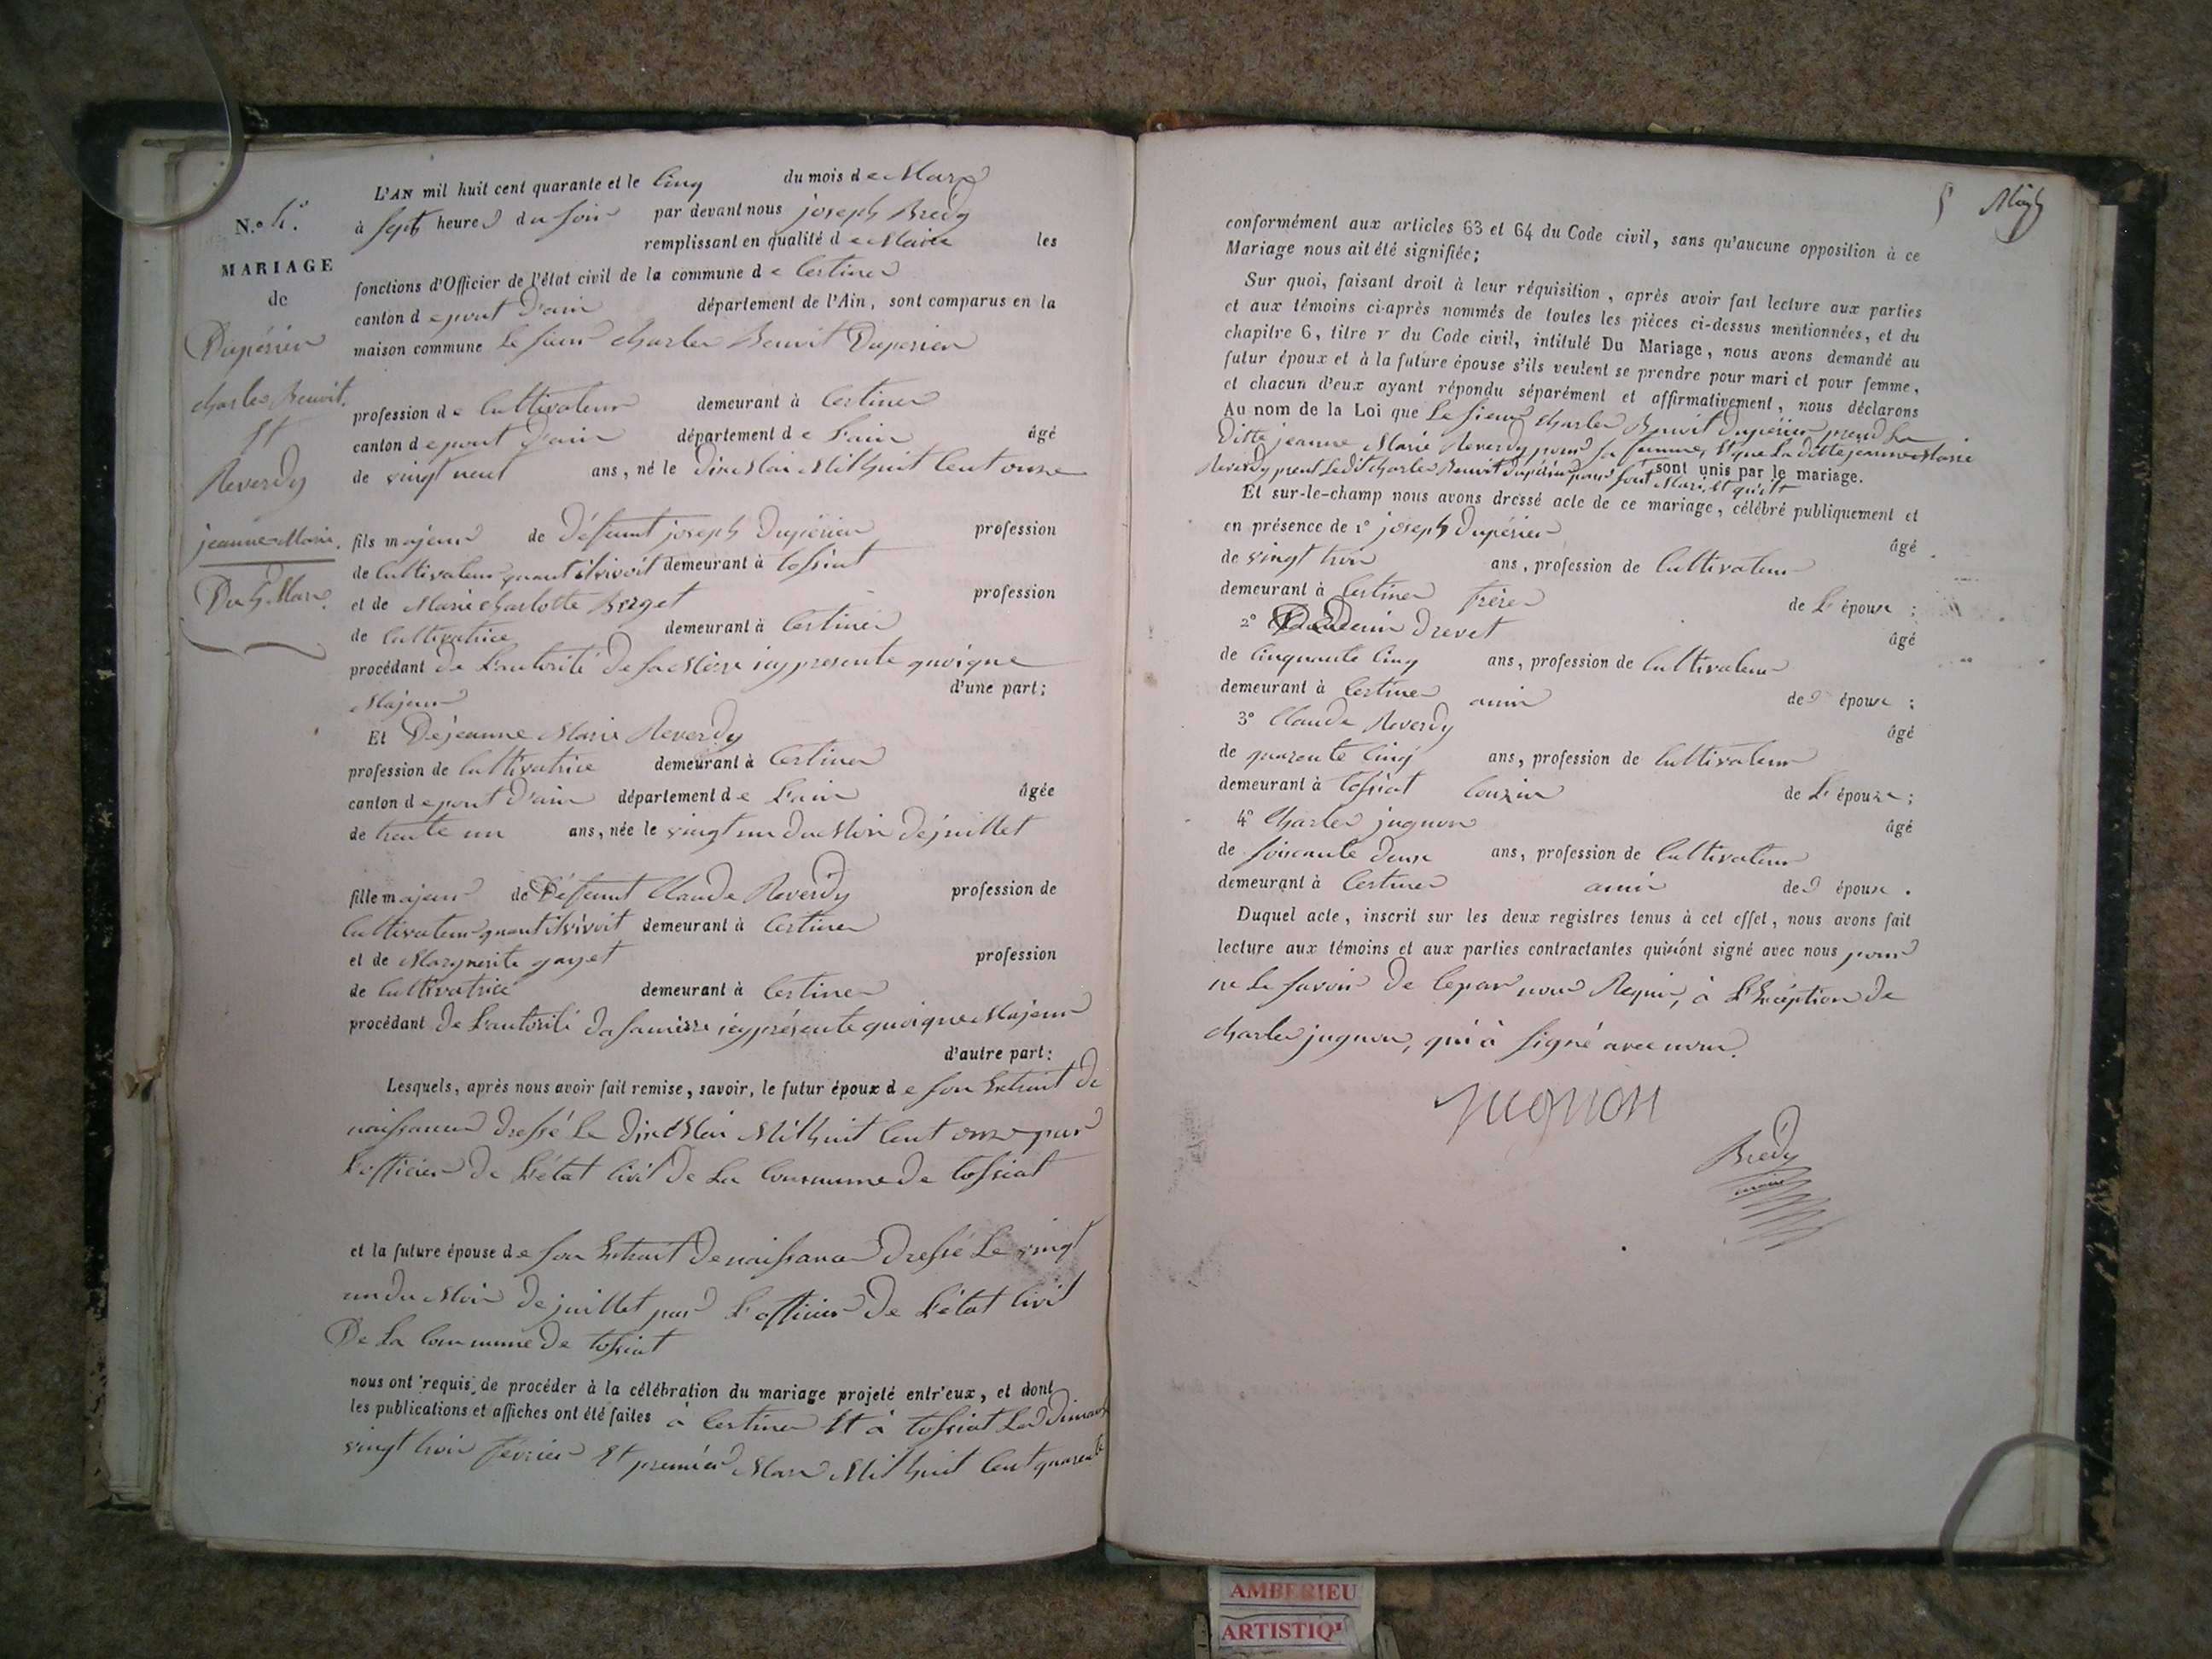 N.º 4.
MARIAGE
de
Dupérier
charles Benoit.
Et
Reverdy
jeanne Marie.
Du 5 Mars.
L'AN mil huit cent quarante et le Cinq du mois de Mars
à sept heures du soir par devant nous joseph Bredy
remplissant en qualité de Maire les
fonctions d'Officier de l'état civil de la commune de Certines
canton de pont d'ain département de l'Ain, sont comparus en la
maison commune Le sieur charles Benoit Duperier
profession de Cultivateur demeurant à Certines
canton de pont d'ain département de L'ain âgé
de vingt neuf ans, né le dix Mai Mil huit Cent onze
fils majeur de Défunt joseph Dupérier profession
de Cultivateur quant il vivoit demeurant à tossiat
et de Marie charlotte Berget profession
de Cultivatrice demeurant à Certines
procédant de L'autorité de sa Mère icy presente quoique
Majeur d'une part;
Et De jeanne Marie Reverdy
profession de Cultivatrice demeurant à Certines
canton de pont d'ain département de L'ain âgée
de trente un ans, née le vingt un du Mois de juillet
fille majeur de Défunt Claude Reverdy profession de
Cultivateur quant il vivoit demeurant à Certines
et de Marguerite gayet profession
de Cultivatrice demeurant à Certines
procédant de L'autorité de sa mère icy présente quoique Majeur
d'autre part:
Lesquels, après nous avoir fait remise, savoir, le futur époux de son Extrait de
naissance dressé Le dix Mai Mil huit Cent onze par
L'officier de L'état Civil de La Commune de tossiat
et la future épouse de son Extrait de naissance dressé Le vingt
un du Mois de juillet par L'officier de L'état Civil
De La Commune de tossiat
nous ont requis de procéder à la célébration du mariage projeté entr'eux, et dont
les publications et affiches ont été faites à Certines Et à tossiat Les Dimanch
vingt trois février Et premier Mars Mil huit Cent quarente
5
conformément aux articles 63 et 64 du Code civil, sans qu'aucune opposition à ce
Mariage nous ait été signifiée;
Sur quoi, faisant droit à leur réquisition, après avoir fait lecture aux parties
et aux témoins ci-après nommés de toutes les pièces ci-dessus mentionnées, et du
chapitre 6, titre V du Code civil, intitulé Du Mariage, nous avons demandé au
futur époux et à la future épouse s'ils veulent se prendre pour mari et pour femme,
et chacun d'eux ayant répondu séparément et affirmativement, nous déclarons
Au nom de la Loi que Le sieur charles Benoit Dupérier prend La
Ditte jeanne Marie Reverdy pour sa femme, Et que La ditte jeanne Marie
Reverdy prent Ledit charles Benoit Dupérier pour sont Mari, Et qu'ils
sont unis par le mariage.
Et sur-le-champ nous avons dressé acte de ce mariage, célébré publiquement et
en présence de 1º joseph Dupérier âgé
de vingt trois ans, profession de Cultivateur
demeurant à Certines frère de L'époux ;
2º drevet âgé
de Cinquante Cinq ans, profession de Cultivateur
demeurant à Certines amis des époux ;
3º Claude Reverdy âgé
de quarente Cinq ans, profession de Cultivateur
demeurant à tossiat Couzin de L'épouze ;
4º Charles jugnon âgé
de soixante deux ans, profession de Cultivateur
demeurant à Certines amis des époux .
Duquel acte, inscrit sur les deux registres tenus à cet effet, nous avons fait
lecture aux témoins et aux parties contractantes qui n'ont signé avec nous pour
ne Le savoir de Ce par nous Requis, à L'Exception de
charles jugnon, qui à signé avec nous.
jugnon
Bredy
maire
AMBERIEU
ARTISTIQ